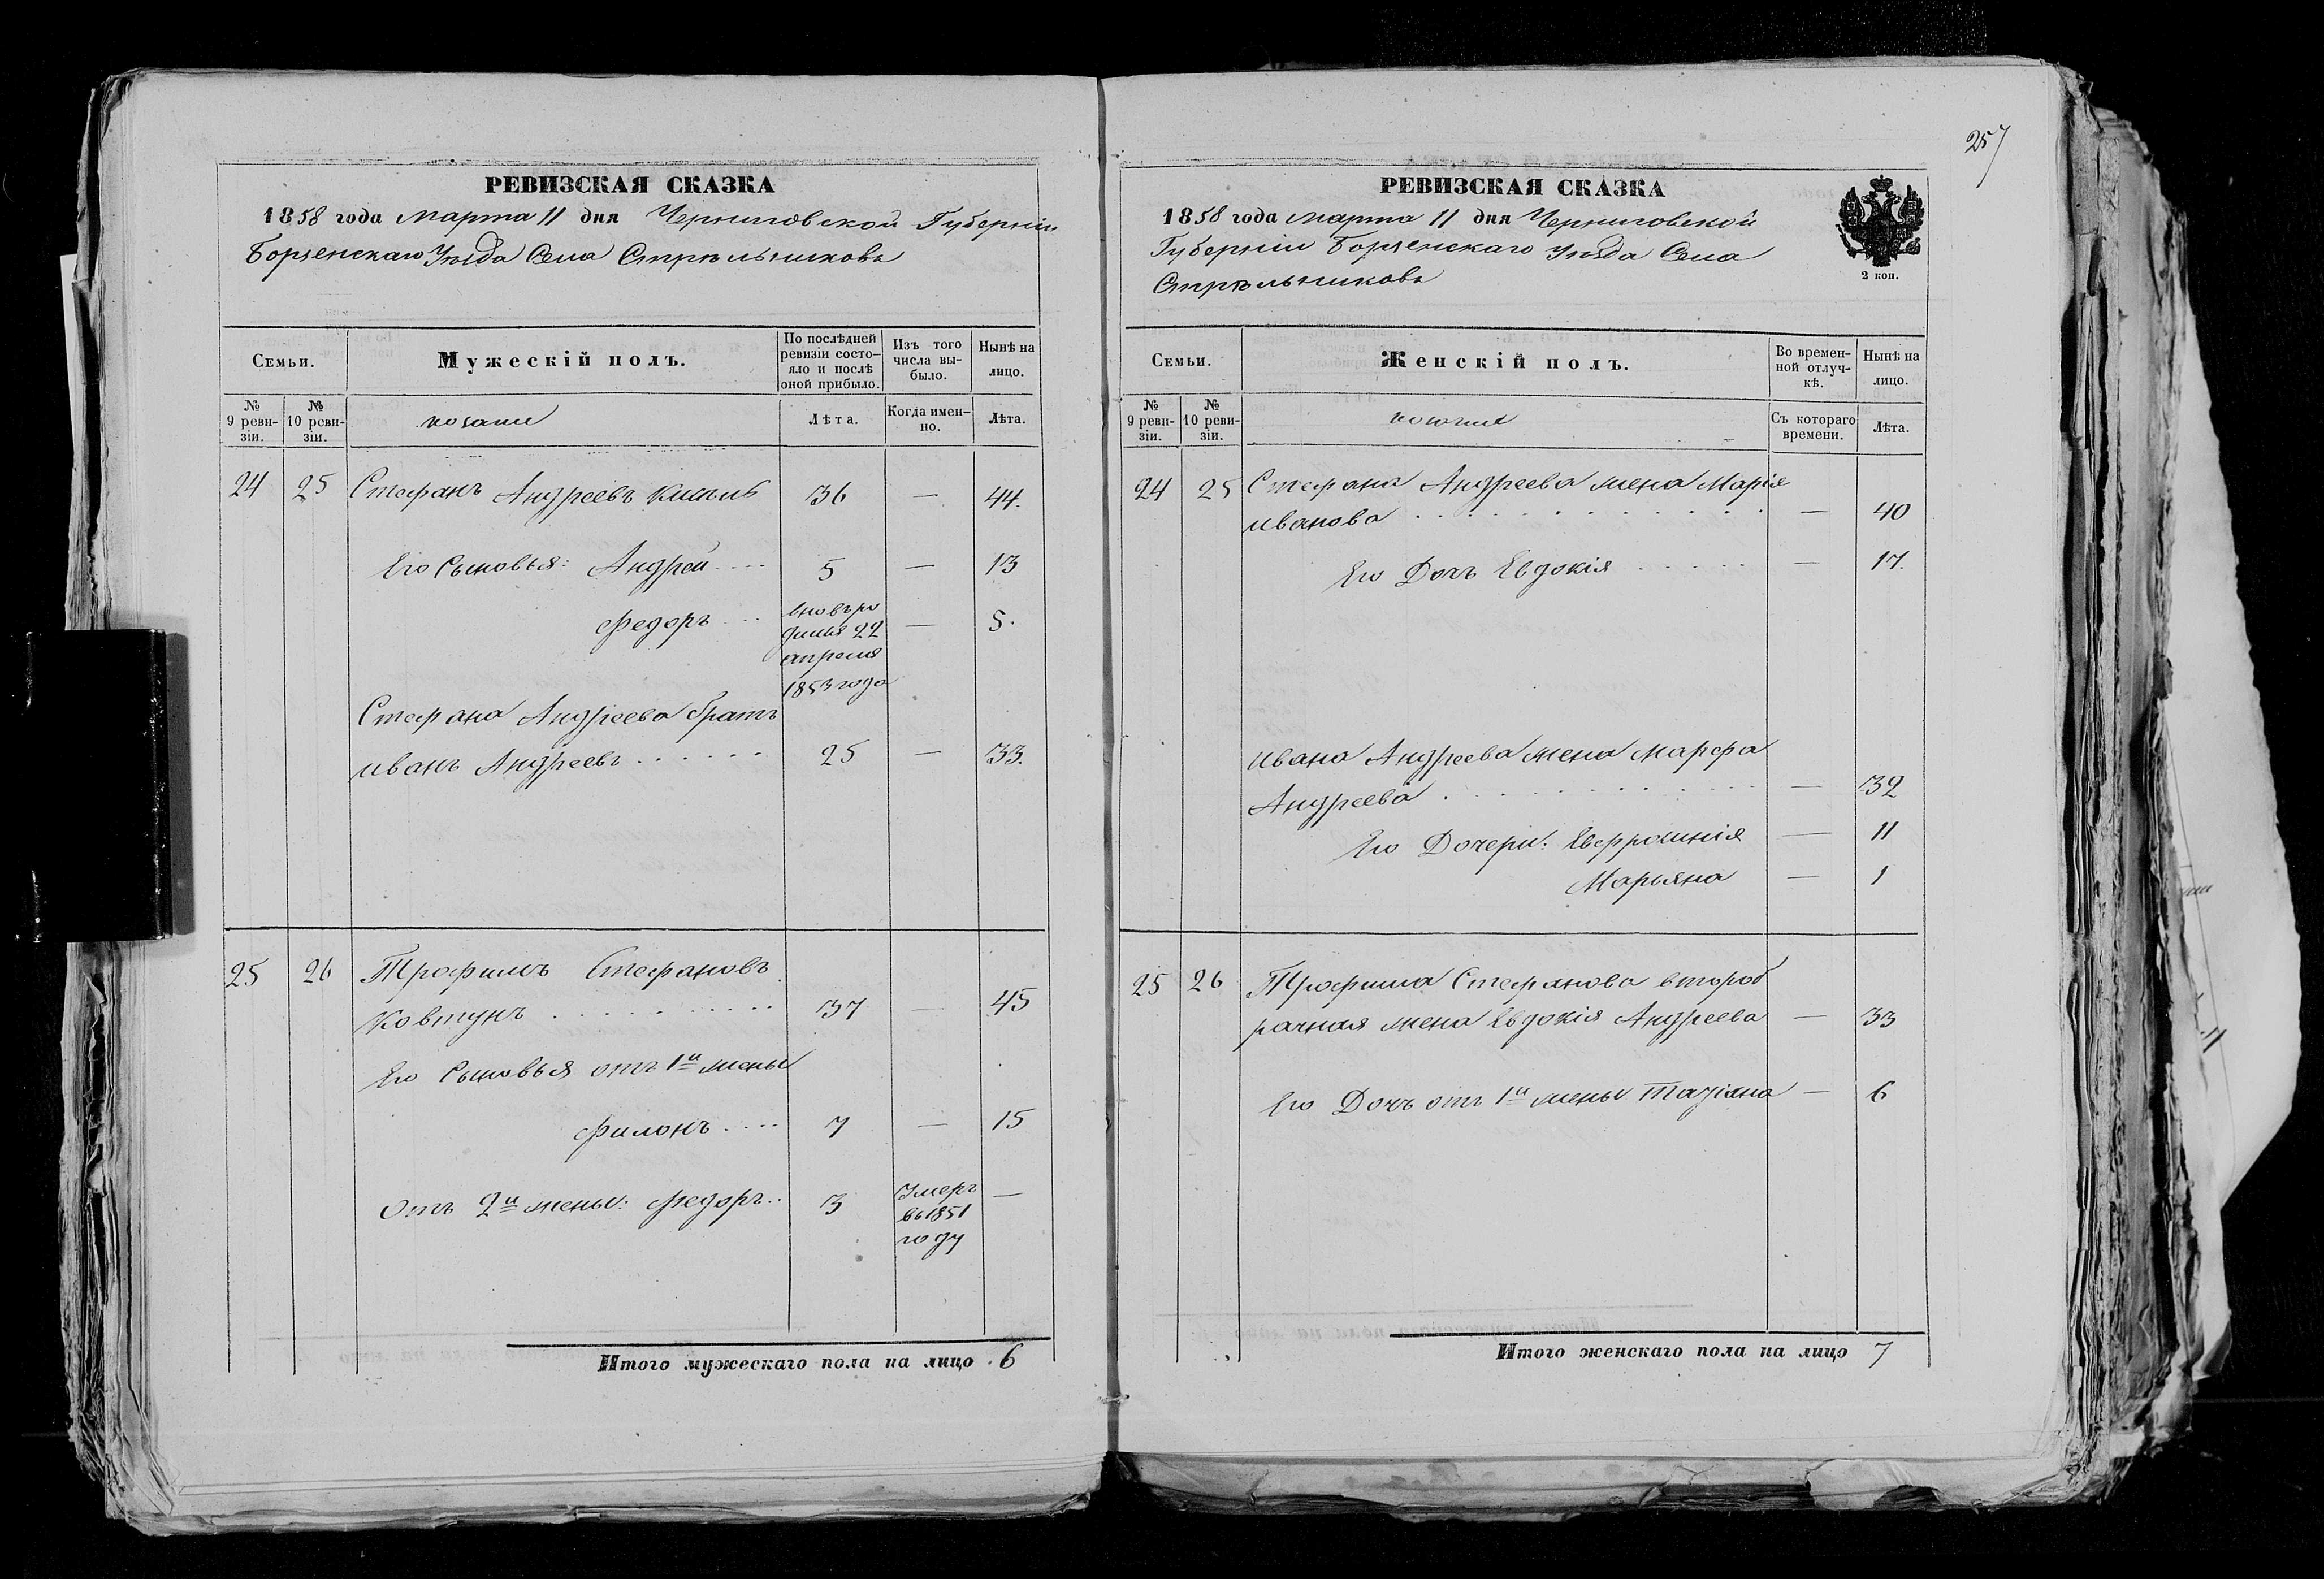 257
РЕВИЗСКАЯ СКАЗКА
1858 года Марта 11 дня Черниговской Губерніи
Борзенскаго Уѣзда Села Стрѣльниковъ
Семьи.
Мужескій полъ.
По послѣдней ревизіи состо-
яло и послѣ
оной прибыло.
Изъ того
числа вы-
было.
Нынѣ на
лицо.
№
9 реви-
зіи.
№
10 реви-
зіи.
козаки
Лѣта.
Когда имен-
но.
Лѣта.
24 25 Стефанъ Андреевъ 36 — 44.
Его Сыновья: Андрей .... 5 — 13
Федоръ ... — 5.
вновь ро
дился 22
апреля
1853 года
Стефана Андреева братъ
Иванъ Андреевъ ...... 25 — 33.
25 26 Трофимъ Стефановъ
Ковтунъ .......... 37 — 45
Его Сыновья отъ 1й жены
Филонъ .... 7 — 15
Отъ 2й жены: Федоръ.. 3 —
Умеръ
въ 1851
году
Итого мужескаго пола на лицо 6
РЕВИЗСКАЯ СКАЗКА
1858 года Марта 11 дня Черниговской
Губерніи Борзенскаго Уѣзда Села
Стрѣльниковъ
2 коп.
Семьи.
Женскій полъ.
Во времен-
ной отлуч-
кѣ.
Нынѣ на
лицо.
№
9 реви-
зіи.
№
10 реви-
зіи.
Съ котораго
времени.
Лѣта.
24 25 Стефана Андреева жена Марія
Иванова — 40
Его Дочь Евдокія — 17.
Ивана Андреева жена Марфа
Андреева — 32
Его Дочери: Евфросинія — 11
Марьяна — 1
25 26 Трофима Стефанова второб
рачная жена Евдокія Андреева — 33
Его Дочь отъ 1й жены Татіана — 6
Итого женскаго пола на лицо 7